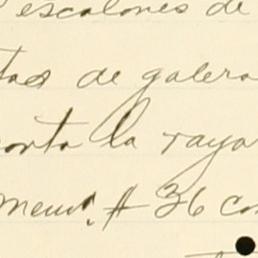 escalones de
tas de galera
corta la raya
# 36 co